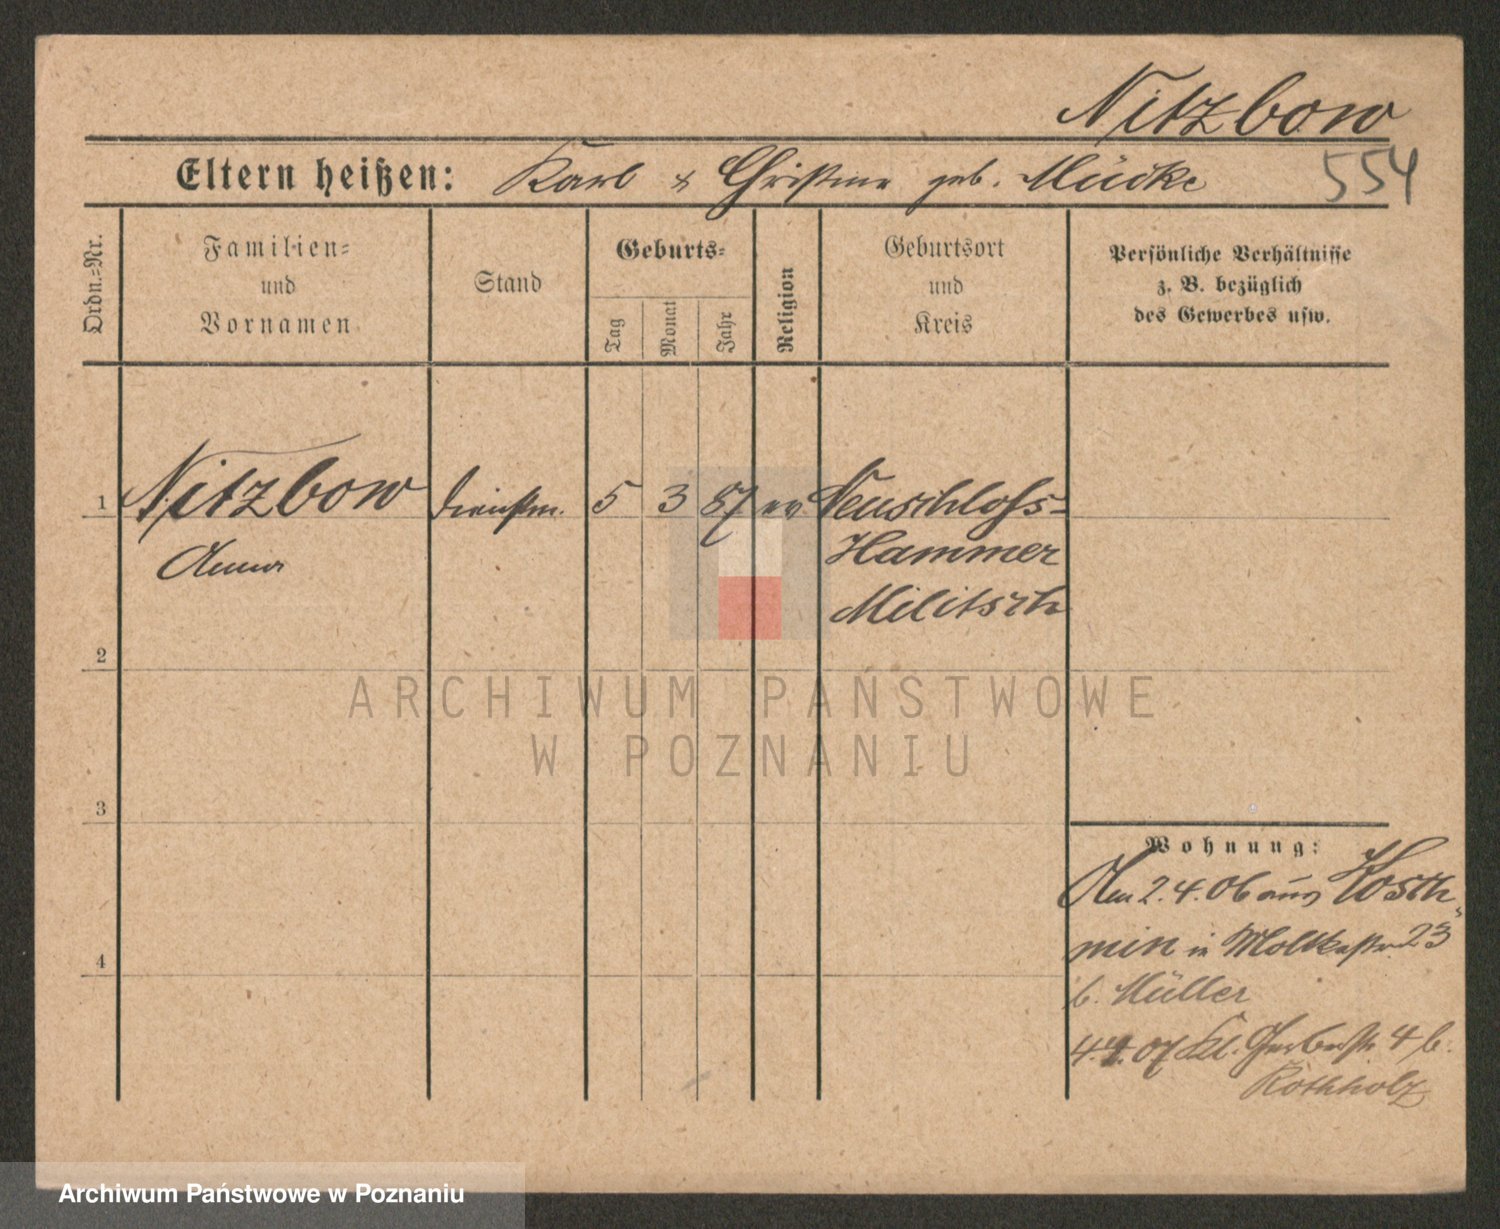 Nitzbow
Eltern heißen: Karl & Christine geb. Mücke
554
Ordn.=Nr.
Familien=
und
Vornamen
Stand
Geburts=
Tag
Monat
Jahr
Religion
Geburtsort
und
Kreis
Persönliche Verhältnisse
z. B. bezüglich
des Gewerbes usw.
1 Nitzbow Dienstm. 5 3 87 ev Neuschloss-
Anna Hammer
Militsch
2
ARCHIWUM PAŃSTWOWE
W POZNANIU
3
4
Wohnung:
Am 2.4.06 aus Kosch-
min in Moltkestr. 23
b. Müller
4.4.07 Kl. Gerberstr 4 b.
Rothholz
Archiwum Państwowe w Poznaniu